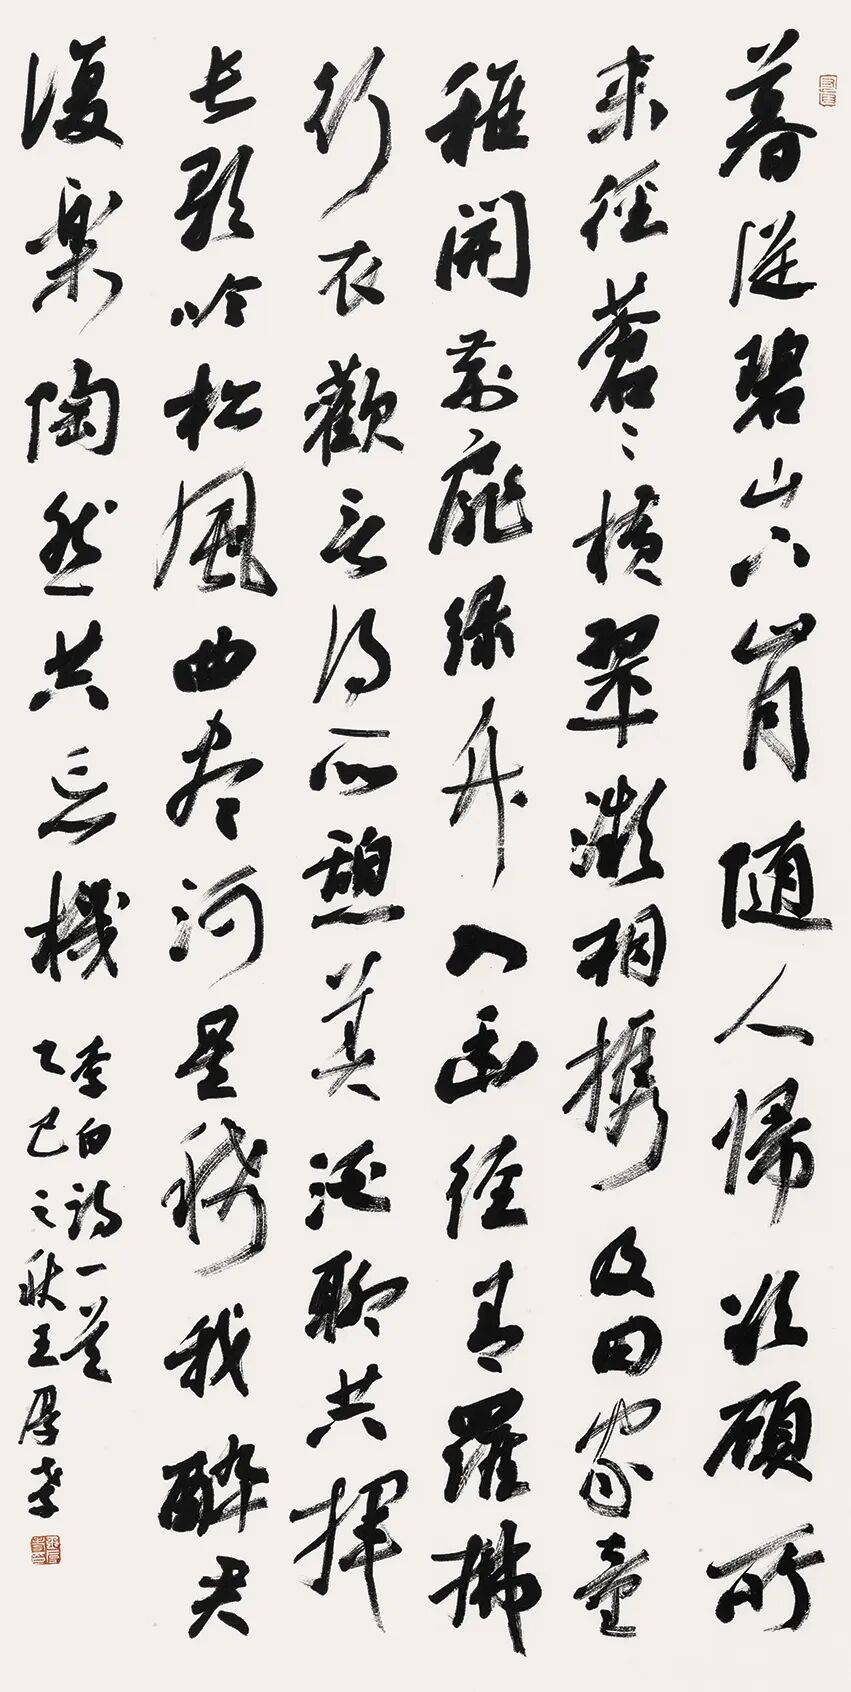 暮從碧山下山月隨人歸卻顧所
來徑蒼〻橫翠微相攜及田家童
稚開荊扉綠竹入幽徑青羅拂
行衣歡言得所憩美酒聊共揮
長歌吟松風曲盡河星稀我醉君
復樂陶然共忘機
李白詩一首
乙巳之秋王厚